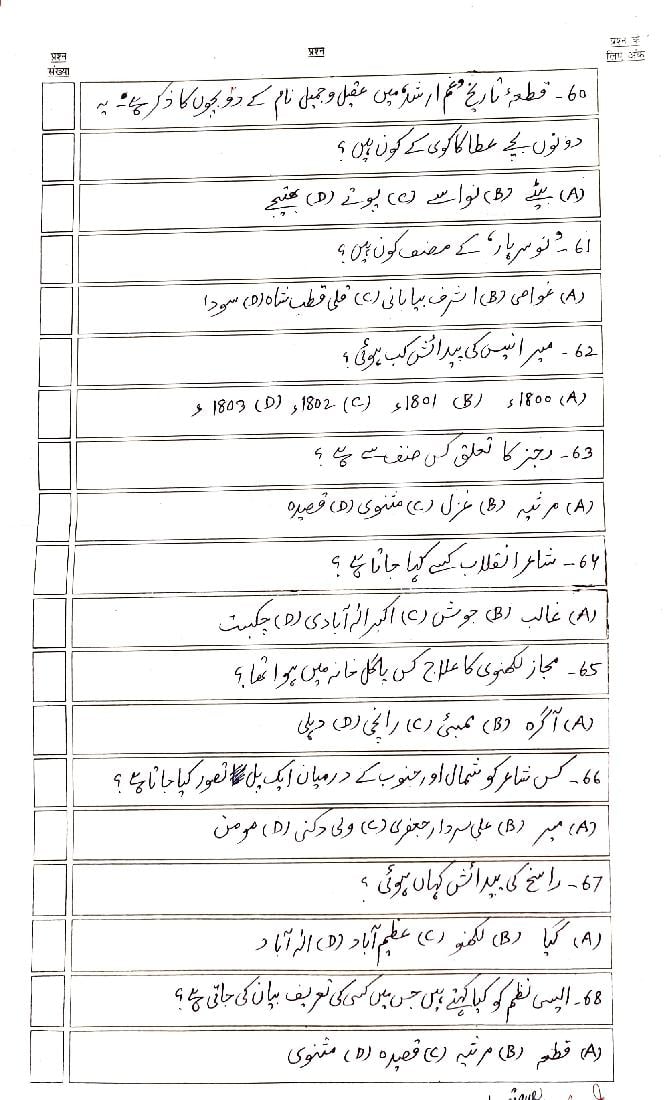 प्रश्न संख्या
प्रश्न
प्रश्न के लिए अंक
60- قطعۂ تاریخ 'غم ارشد' میں عقیل و جمیل نام کے دو بچوں کا ذکر ہے۔ یہ
دونوں بچے عطا کاکوی کے کون ہیں؟
(A) بیٹے (B) نواسے (C) پوتے (D) بھتیجے
61- 'نوسرہار' کے مصنف کون ہیں؟
(A) غواصی (B) اشرف بیابانی (C) قلی قطب شاہ (D) سودا
62- میر انیس کی پیدائش کب ہوئی؟
(A) 1800ء (B) 1801ء (C) 1802ء (D) 1803ء
63- رجز کا تعلق کس صنف سے ہے؟
(A) مرثیہ (B) غزل (C) مثنوی (D) قصیدہ
64- شاعر انقلاب کسے کہا جاتا ہے؟
(A) غالب (B) جوش (C) اکبر الہ آبادی (D) چکبست
65- مجاز لکھنوی کا علاج کس پاگل خانہ میں ہوا تھا؟
(A) آگرہ (B) ممبئی (C) رانچی (D) دہلی
66- کس شاعر کو شمال اور جنوب کے درمیان ایک پل تصور کیا جاتا ہے؟
(A) میر (B) علی سردار جعفری (C) ولی دکنی (D) مومن
67- راسخ کی پیدائش کہاں ہوئی؟
(A) گیا (B) لکھنو (C) عظیم آباد (D) الہ آباد
68- ایسی نظم کو کیا کہتے ہیں جس میں کسی کی تعریف بیان کی جاتی ہے؟
(A) قطعہ (B) مرثیہ (C) قصیدہ (D) مثنوی